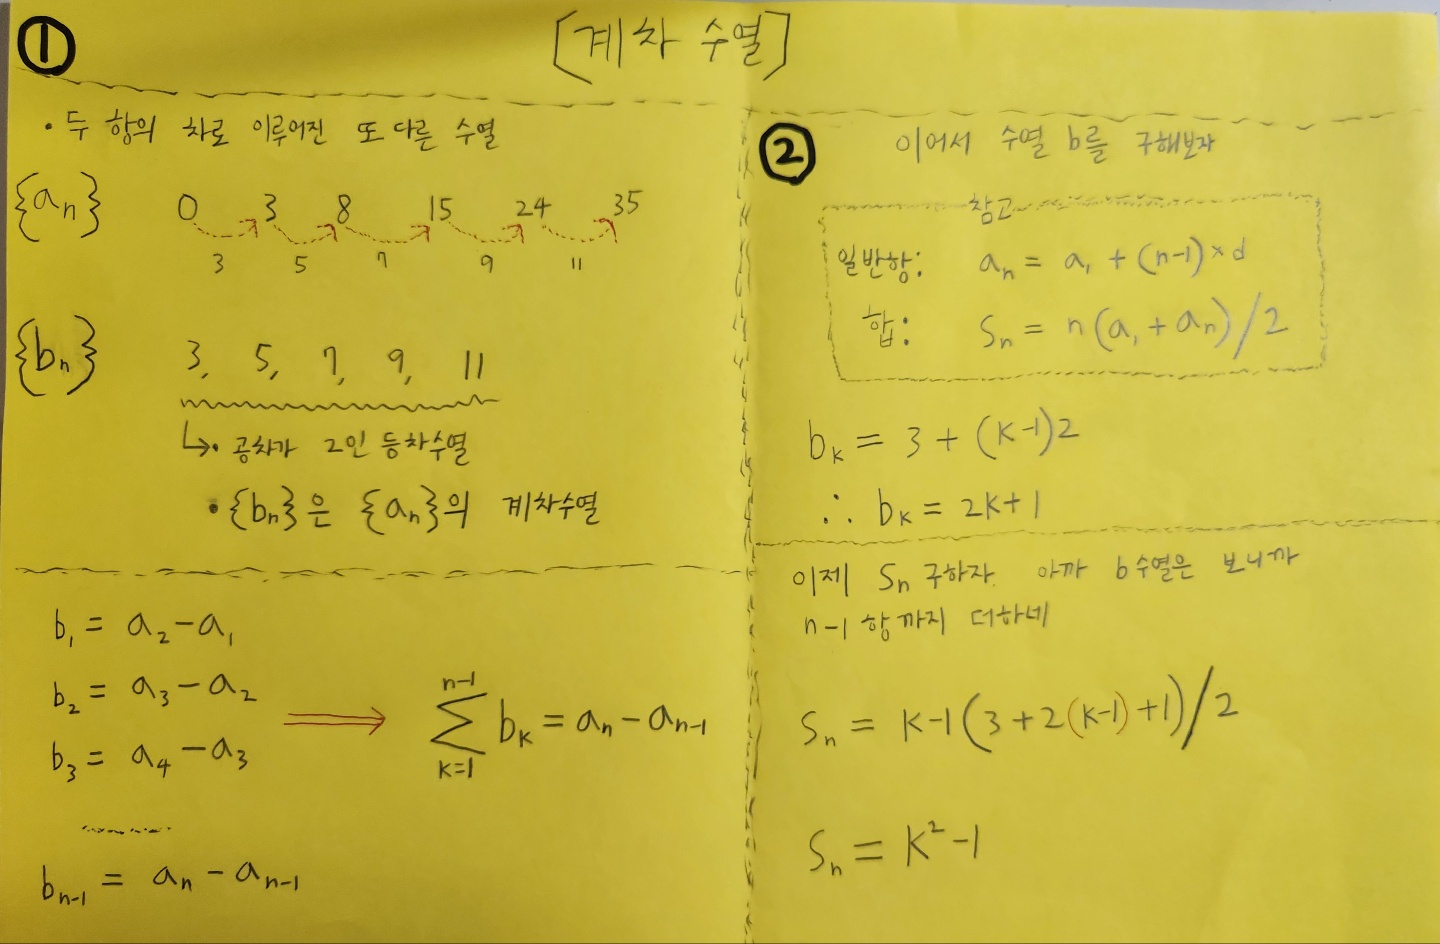 ①
[계차 수열]
• 두 항의 차로 이루어진 또 다른 수열
{aₙ} 0 3 8 15 24 35
3 5 7 9 11
{bₙ} 3, 5, 7, 9, 11
↳• 공차가 2인 등차수열
• {bₙ}은 {aₙ}의 계차수열
b₁ = a₂-a₁
b₂ = a₃-a₂
b₃ = a₄-a₃
bₙ₋₁ = aₙ-aₙ₋₁
⇒
n-1
∑ bₖ = aₙ-aₙ₋₁
k=1
②
이어서 수열 b를 구해보자
참고
일반항: aₙ = a₁ + (n-1)×d
합: Sₙ = n(a₁+aₙ)/2
bₖ = 3 + (k-1)2
∴ bₖ = 2k+1
이제 Sₙ 구하자. 아까 b수열은 보니까
n-1 항까지 더하네
Sₙ = k-1(3+2(k-1)+1)/2
Sₙ = k²-1